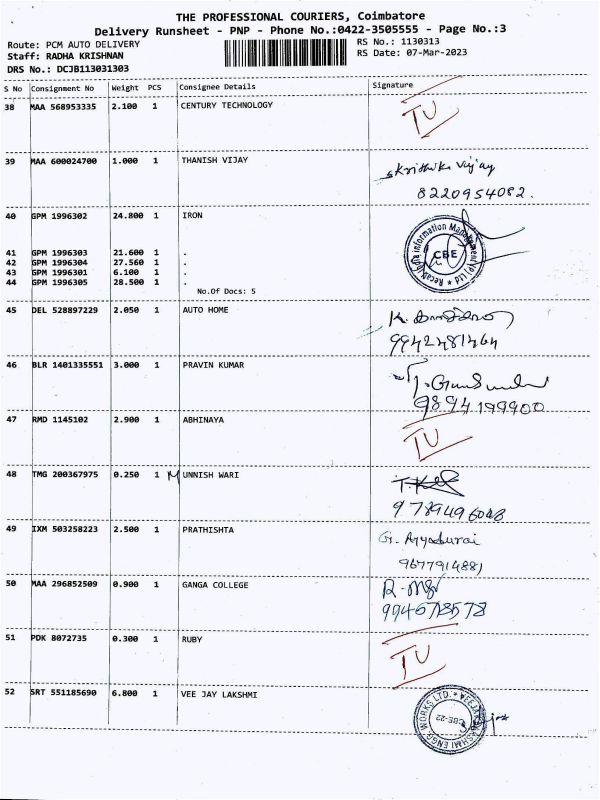 THE PROFESSIONAL COURIERS, Coimbatore
Delivery Runsheet - PNP - Phone No.:0422-3505555 - Page No.:3
Route: PCM AUTO DELIVERY RS No.: 1130313
Staff: RADHA KRISHNAN RS Date: 07-Mar-2023
DRS No.: DCJB113031303
S No Consignment No Weight PCS Consignee Details Signature
38 MAA 568953335 2.100 1 CENTURY TECHNOLOGY
39 MAA 600024700 1.000 1 THANISH VIJAY Krithika Vijay
8220954082.
40 GPM 1996302 24.800 1 IRON
41 GPM 1996303 21.600 1 .
42 GPM 1996304 27.560 1 .
43 GPM 1996301 6.100 1 .
44 GPM 1996305 28.500 1 .
No.Of Docs: 5
Information Management (P) Ltd
CBE
45 DEL 528897229 2.050 1 AUTO HOME
9942481464
46 BLR 1401335551 3.000 1 PRAVIN KUMAR
9894199900
47 RMD 1145102 2.900 1 ABHINAYA
48 TMG 200367975 0.250 1 M UNNISH WARI
9789496048
49 IXM 503258223 2.500 1 PRATHISHTA G. Ayyadurai
9677914881
50 MAA 296852509 0.900 1 GANGA COLLEGE
51 PDK 8072735 0.300 1 RUBY
52 SRT 551185690 6.800 1 VEE JAY LAKSHMI
VEEJAY LAKSHMI ENGG. WORKS LTD.
CBE-22